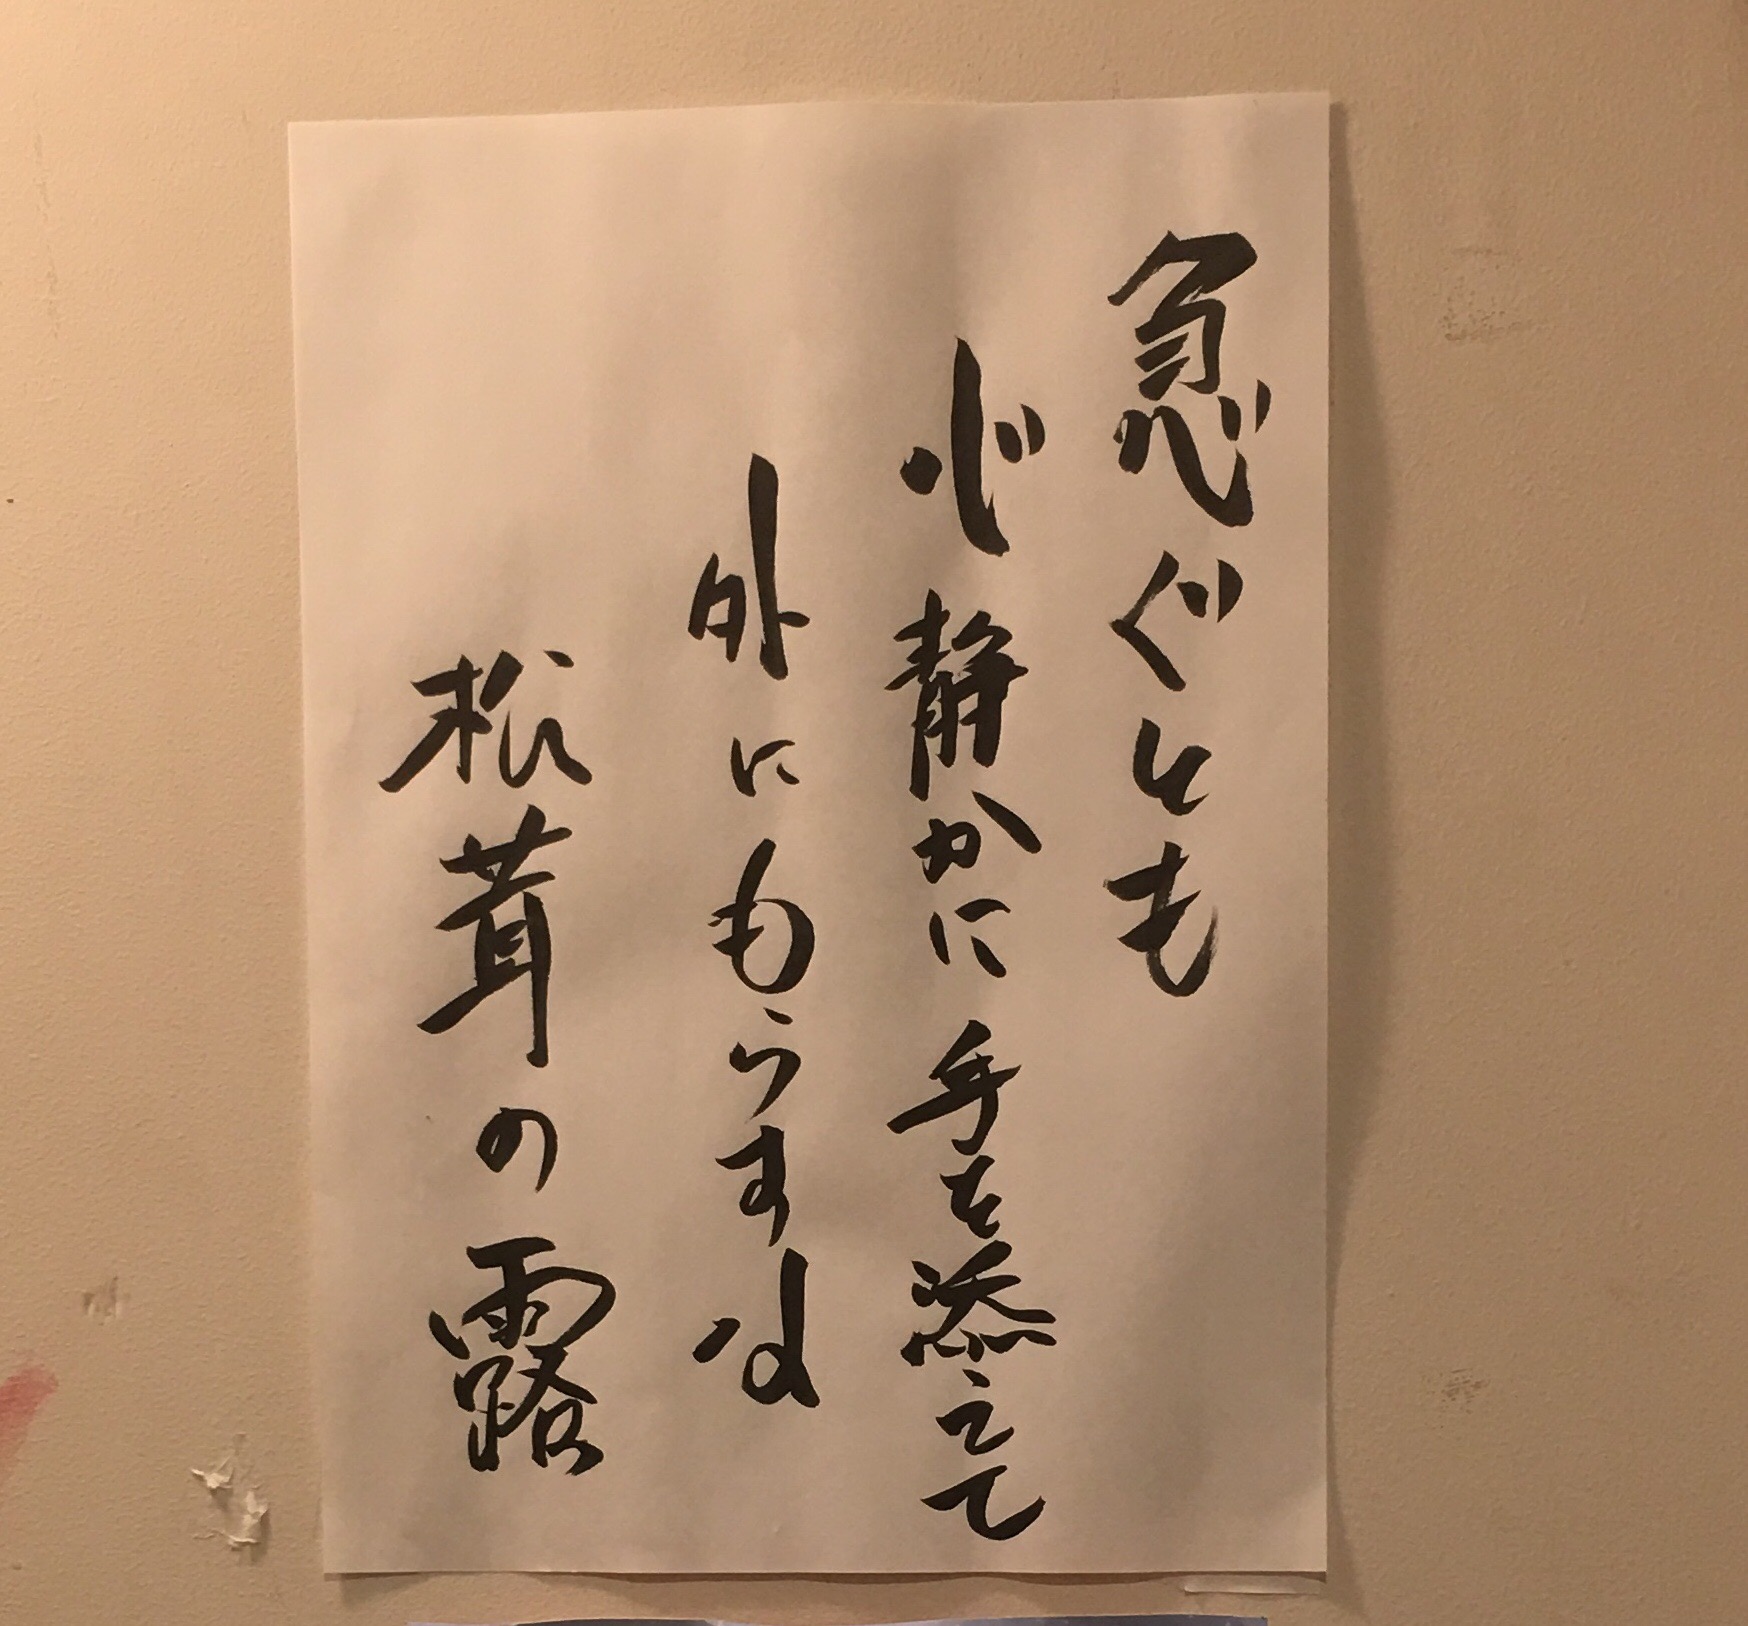 急ぐとも
心静かに手を添えて
外にもらすな
松茸の露